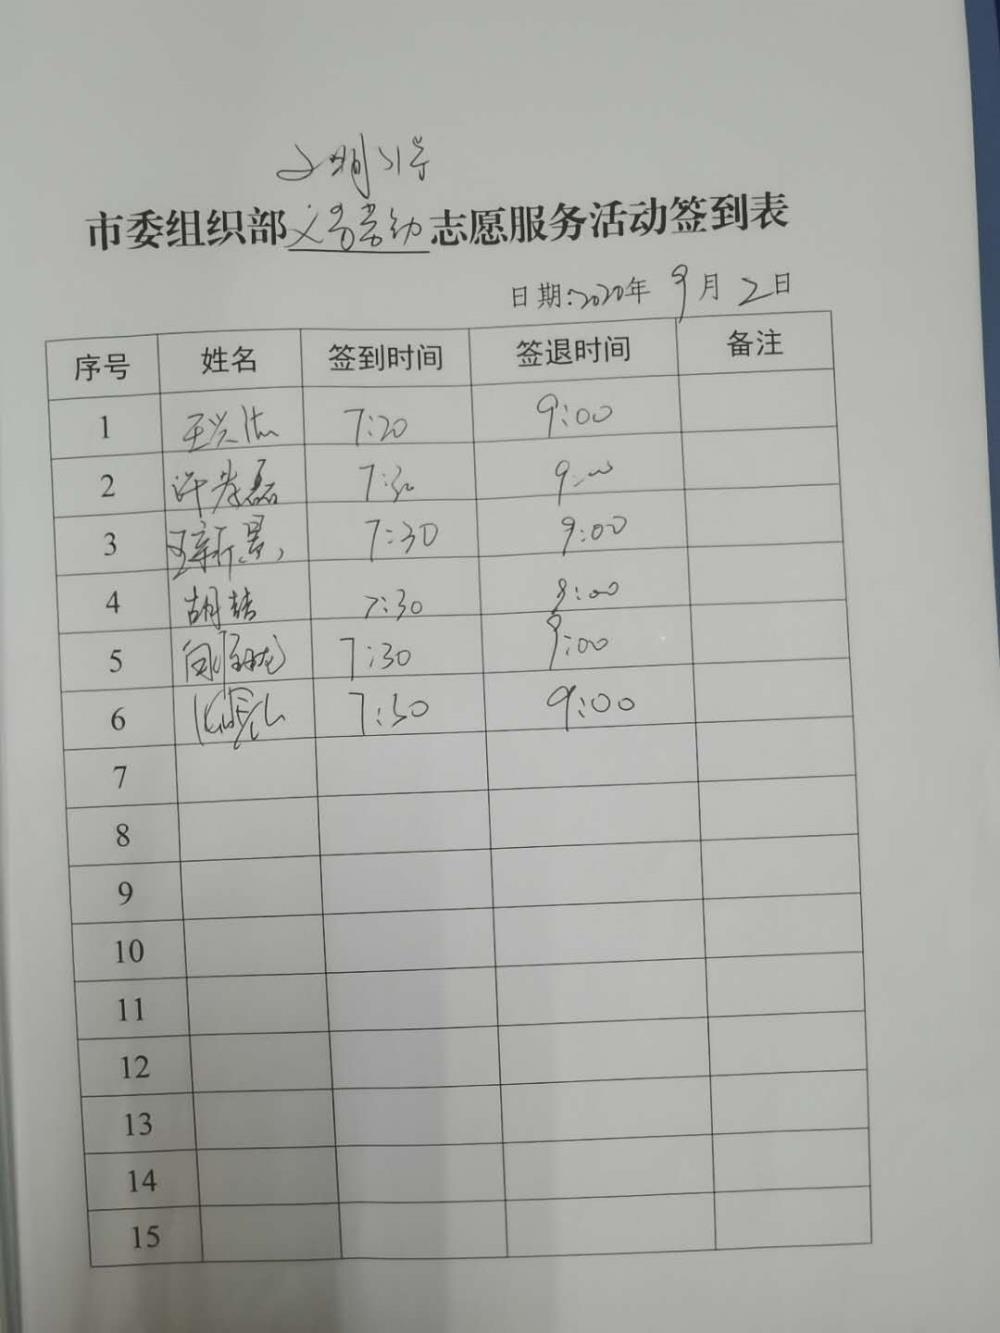 文明引导
市委组织部义务劳动志愿服务活动签到表
日期:2020年9月2日
序号 姓名 签到时间 签退时间 备注
1 7:20 9:00
2 许孝磊 7:30 9:00
3 7:30 9:00
4 胡喆 7:30 9:00
5 7:30 9:00
6 7:30 9:00
7
8
9
10
11
12
13
14
15